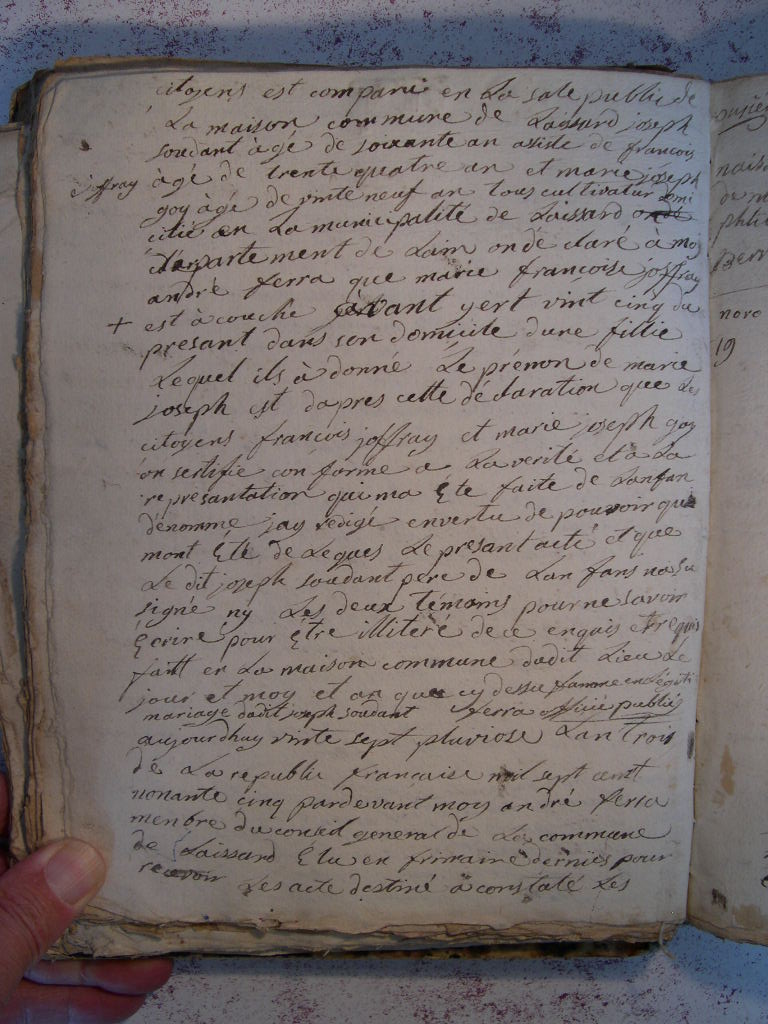 citoyens est comparu en La sale public de
La maison commune de Laissard joseph
soudant àgé de soixante an assisté de francois
joffray àgé de trente quatre an et marie joseph
goy àgé de vinte neuf an tous cultivatur domi
cilié en La municipalité de Laissard
departement de Lain on dé claré à moy
andré ferra que marie francoise joffray
+ est à couche avant yert vint cinq du
presant dans son domicile dune fillie
Lequel ils à donné Le prénon de marie
joseph est dapres cette déclaration que Les
citoyens francois joffray et marie joseph goy
on sertifié conforme a La verité et a La
représantation qui ma Eté faite de Lanfan
dénommé jay redigé en vertu de pouvoir qui
mont Eté de Legues Le presant acte et que
Le dit joseph soudant pere de Lan fans na su
signé ny Les deux témoins pour ne savoir
Ecrire pour Etre illiteré de ce enquis et requis
faitt en La maison commune dudit Lieu Le
jour et moy et an que cy dessu famme en Légiti
mariage dudit joseph soudant ferra officié publié
aujourdhuy vinte sept pluviose Lan trois
de La republic francaise mil sept cent
nonante cinq pardevant moy andré ferra
menbre du conseil general de La commune
de Laissard Elu en frimaire dernies pour
recevoir Les acte destiné à constaté Les
nové
19